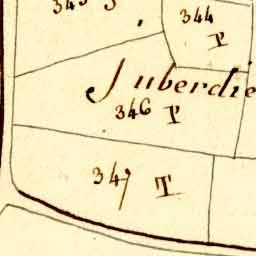 344
P
Juberdie
346 P
347 T